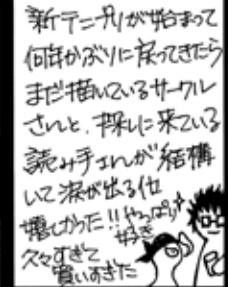 新テニプリが始まって
何年かぶりに戻ってきたら
まだ描いているサークル
さんと、探しに来ている
読み手さんが結構
いて涙が出る位
嬉しかった!!やっぱり
好き
久々すぎて
買いすぎた